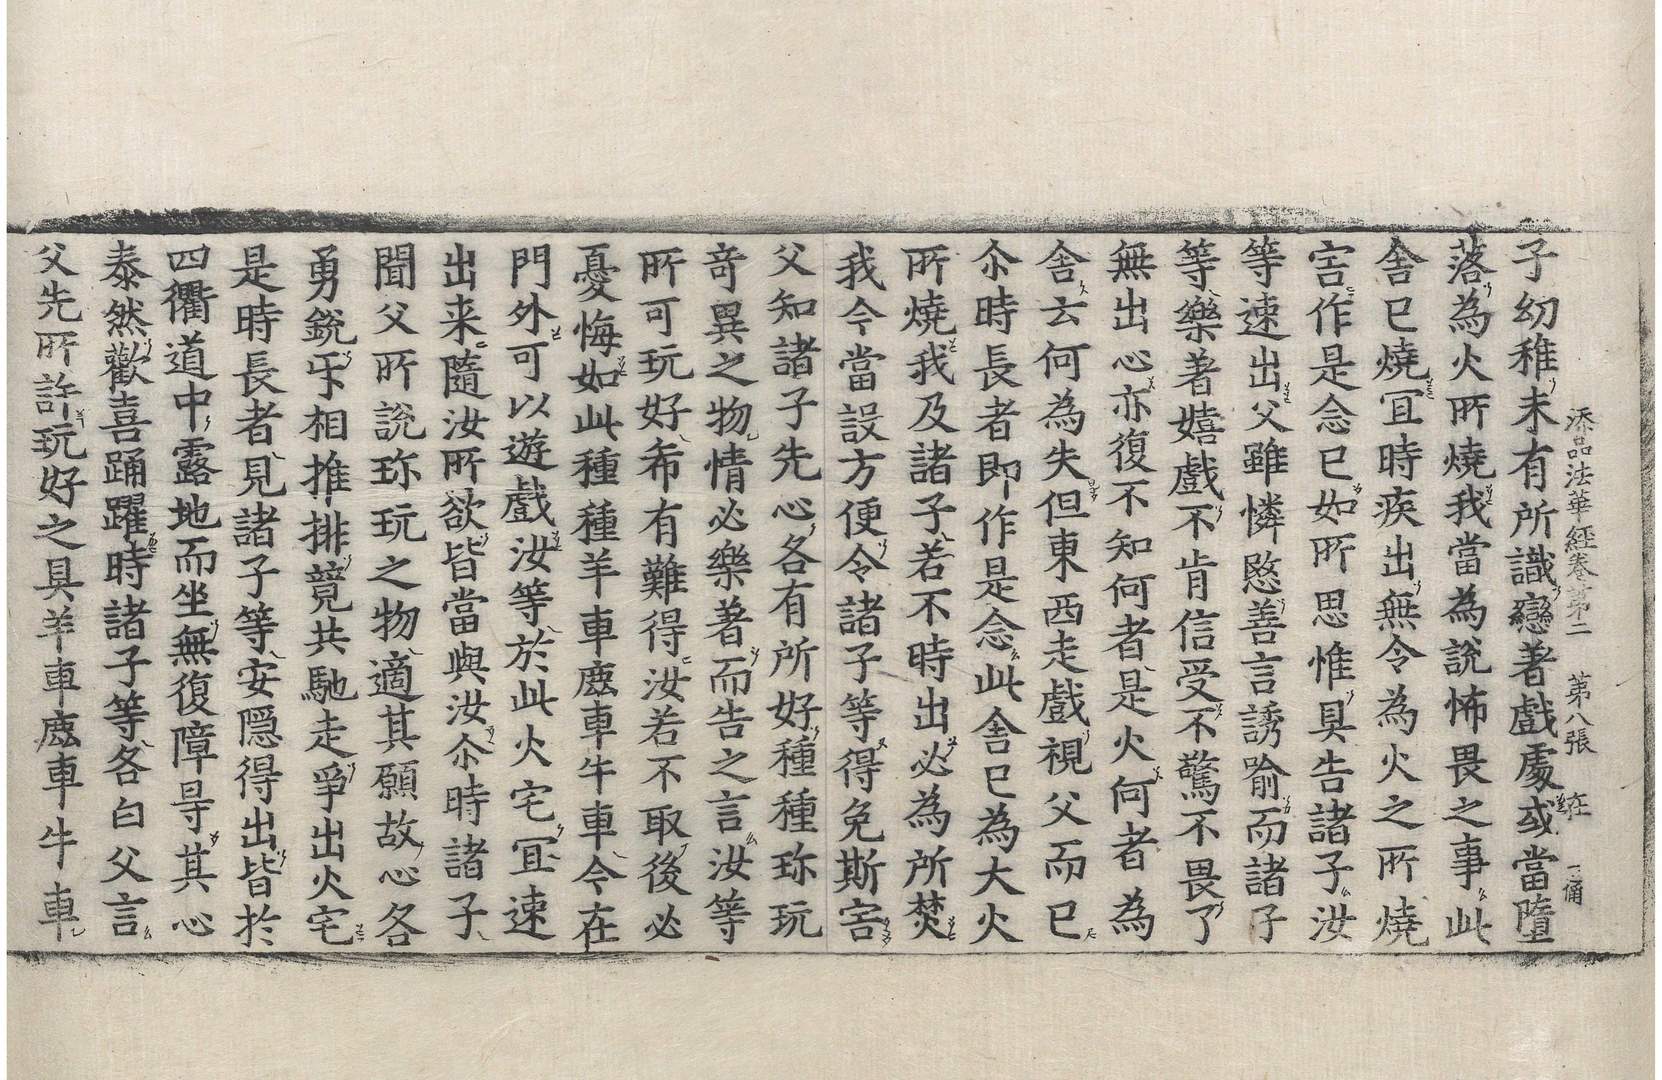 添品法華經卷第二 第八張 在
子幼稚未有所識戀著戲處或當墮
落為火所燒我當為說怖畏之事此
舎已燒冝時疾出無令為火之所燒
害作是念已如所思惟具告諸子汝
等速出父雖憐愍善言誘喻而諸子
等樂著嬉戲不肯信受不驚不畏了
無出心亦復不知何者是火何者為
舎云何為失但東西走戲視父而已
尒時長者即作是念此舎已為大火
所燒我及諸子若不時出必為所焚
我今當設方便令諸子等得免斯害
父知諸子先心各有所好種種珎玩
竒異之物情必樂著而告之言汝等
所可玩好希有難得汝若不取後必
憂悔如此種種羊車鹿車牛車今在
門外可以遊戲汝等於此火宅冝速
出来隨汝所欲皆當與汝尒時諸子
聞父所說珎玩之物適其願故心各
勇銳㸦相推排競共馳走爭出火宅
是時長者見諸子等安隱得出皆於
四衢道中露地而坐無復障㝵其心
泰然歡喜踊躍時諸子等各白父言
父先所許玩好之具羊車鹿車牛車